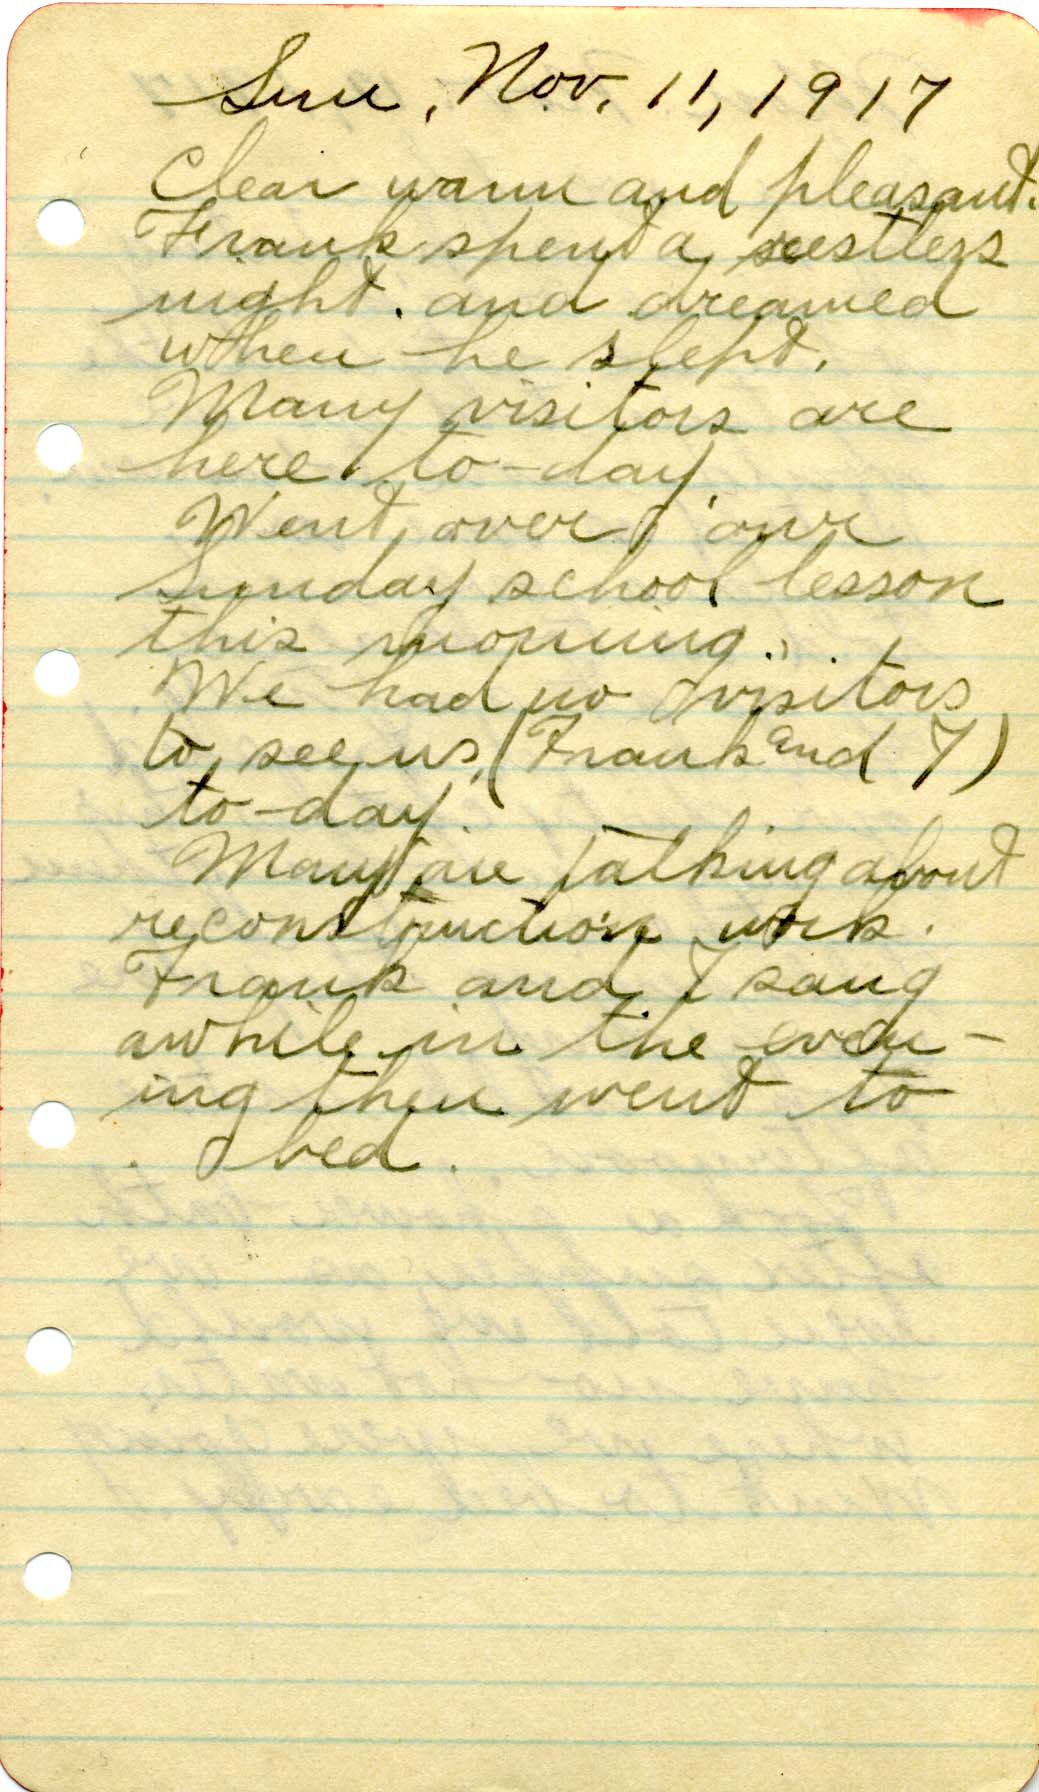 Sun, Nov. 11, 1917
Clear warm and pleasant.
Frank spent a restless
night. and dreamed
when he slept.
Many visitors are
here to-day.
Went over our
Sunday school lesson
this morning.
We had no visitors
to see us (Frank and I)
to-day.
Many are talking about
reconstruction work.
Frank and I sang
awhile in the even-
ing then went to
bed.